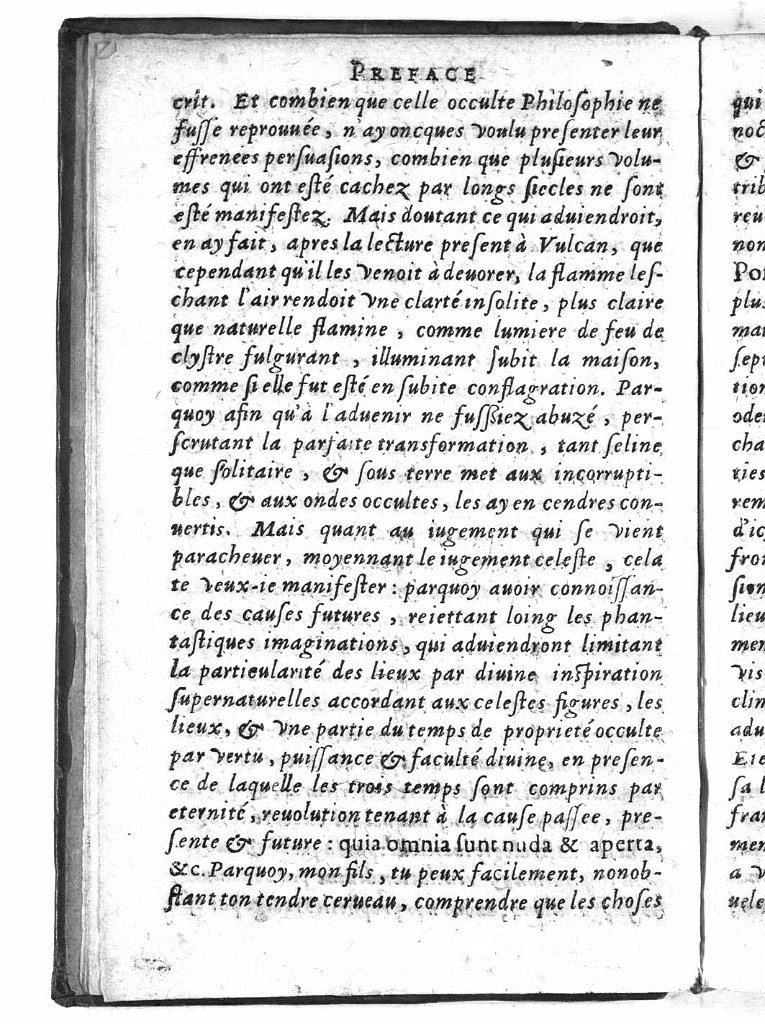 PREFACE
crit. Et combien que celle occulte Philosophie ne
fusse reprouuée, n'ay oncques voulu presenter leur
effrenees persuasions, combien que plusieurs volu-
mes qui ont esté cachez par longs siecles ne sont
esté manifestez. Mais doutant ce qui aduiendroit,
en ay fait, apres la lecture present à Vulcan, que
cependant qu'il les venoit à deuorer, la flamme les-
chant l'air rendoit vne clarté insolite, plus claire
que naturelle flamine, comme lumiere de feu de
clystre fulgurant, illuminant subit la maison,
comme si elle fut esté en subite conflagration. Par-
quoy afin qu'à l'aduenir ne fussiez abuzé, per-
scrutant la parfaite transformation, tant seline
que solitaire, & sous terre met aux incorrupti-
bles, & aux ondes occultes, les ay en cendres con-
uertis. Mais quant au iugement qui se vient
paracheuer, moyennant le iugement celeste, cela
te veux-ie manifester: parquoy auoir connoissan-
ce des causes futures, reiettant loing les phan-
tastiques imaginations, qui aduiendront limitant
la particularité des lieux par diuine inspiration
supernaturelles accordant aux celestes figures, les
lieux, & vne partie du temps de proprieté occulte
par vertu, puissance & faculté diuine, en presen-
ce de laquelle les trois temps sont comprins par
eternité, reuolution tenant à la cause passee, pre-
sente & future: quia omnia sunt nuda & aperta,
&c. Parquoy, mon fils, tu peux facilement, nonob-
stant ton tendre cerueau, comprendre que les choses
qui
&
plus
sept
d'ic
lieu
Vis
adu
sa l
a v
uele